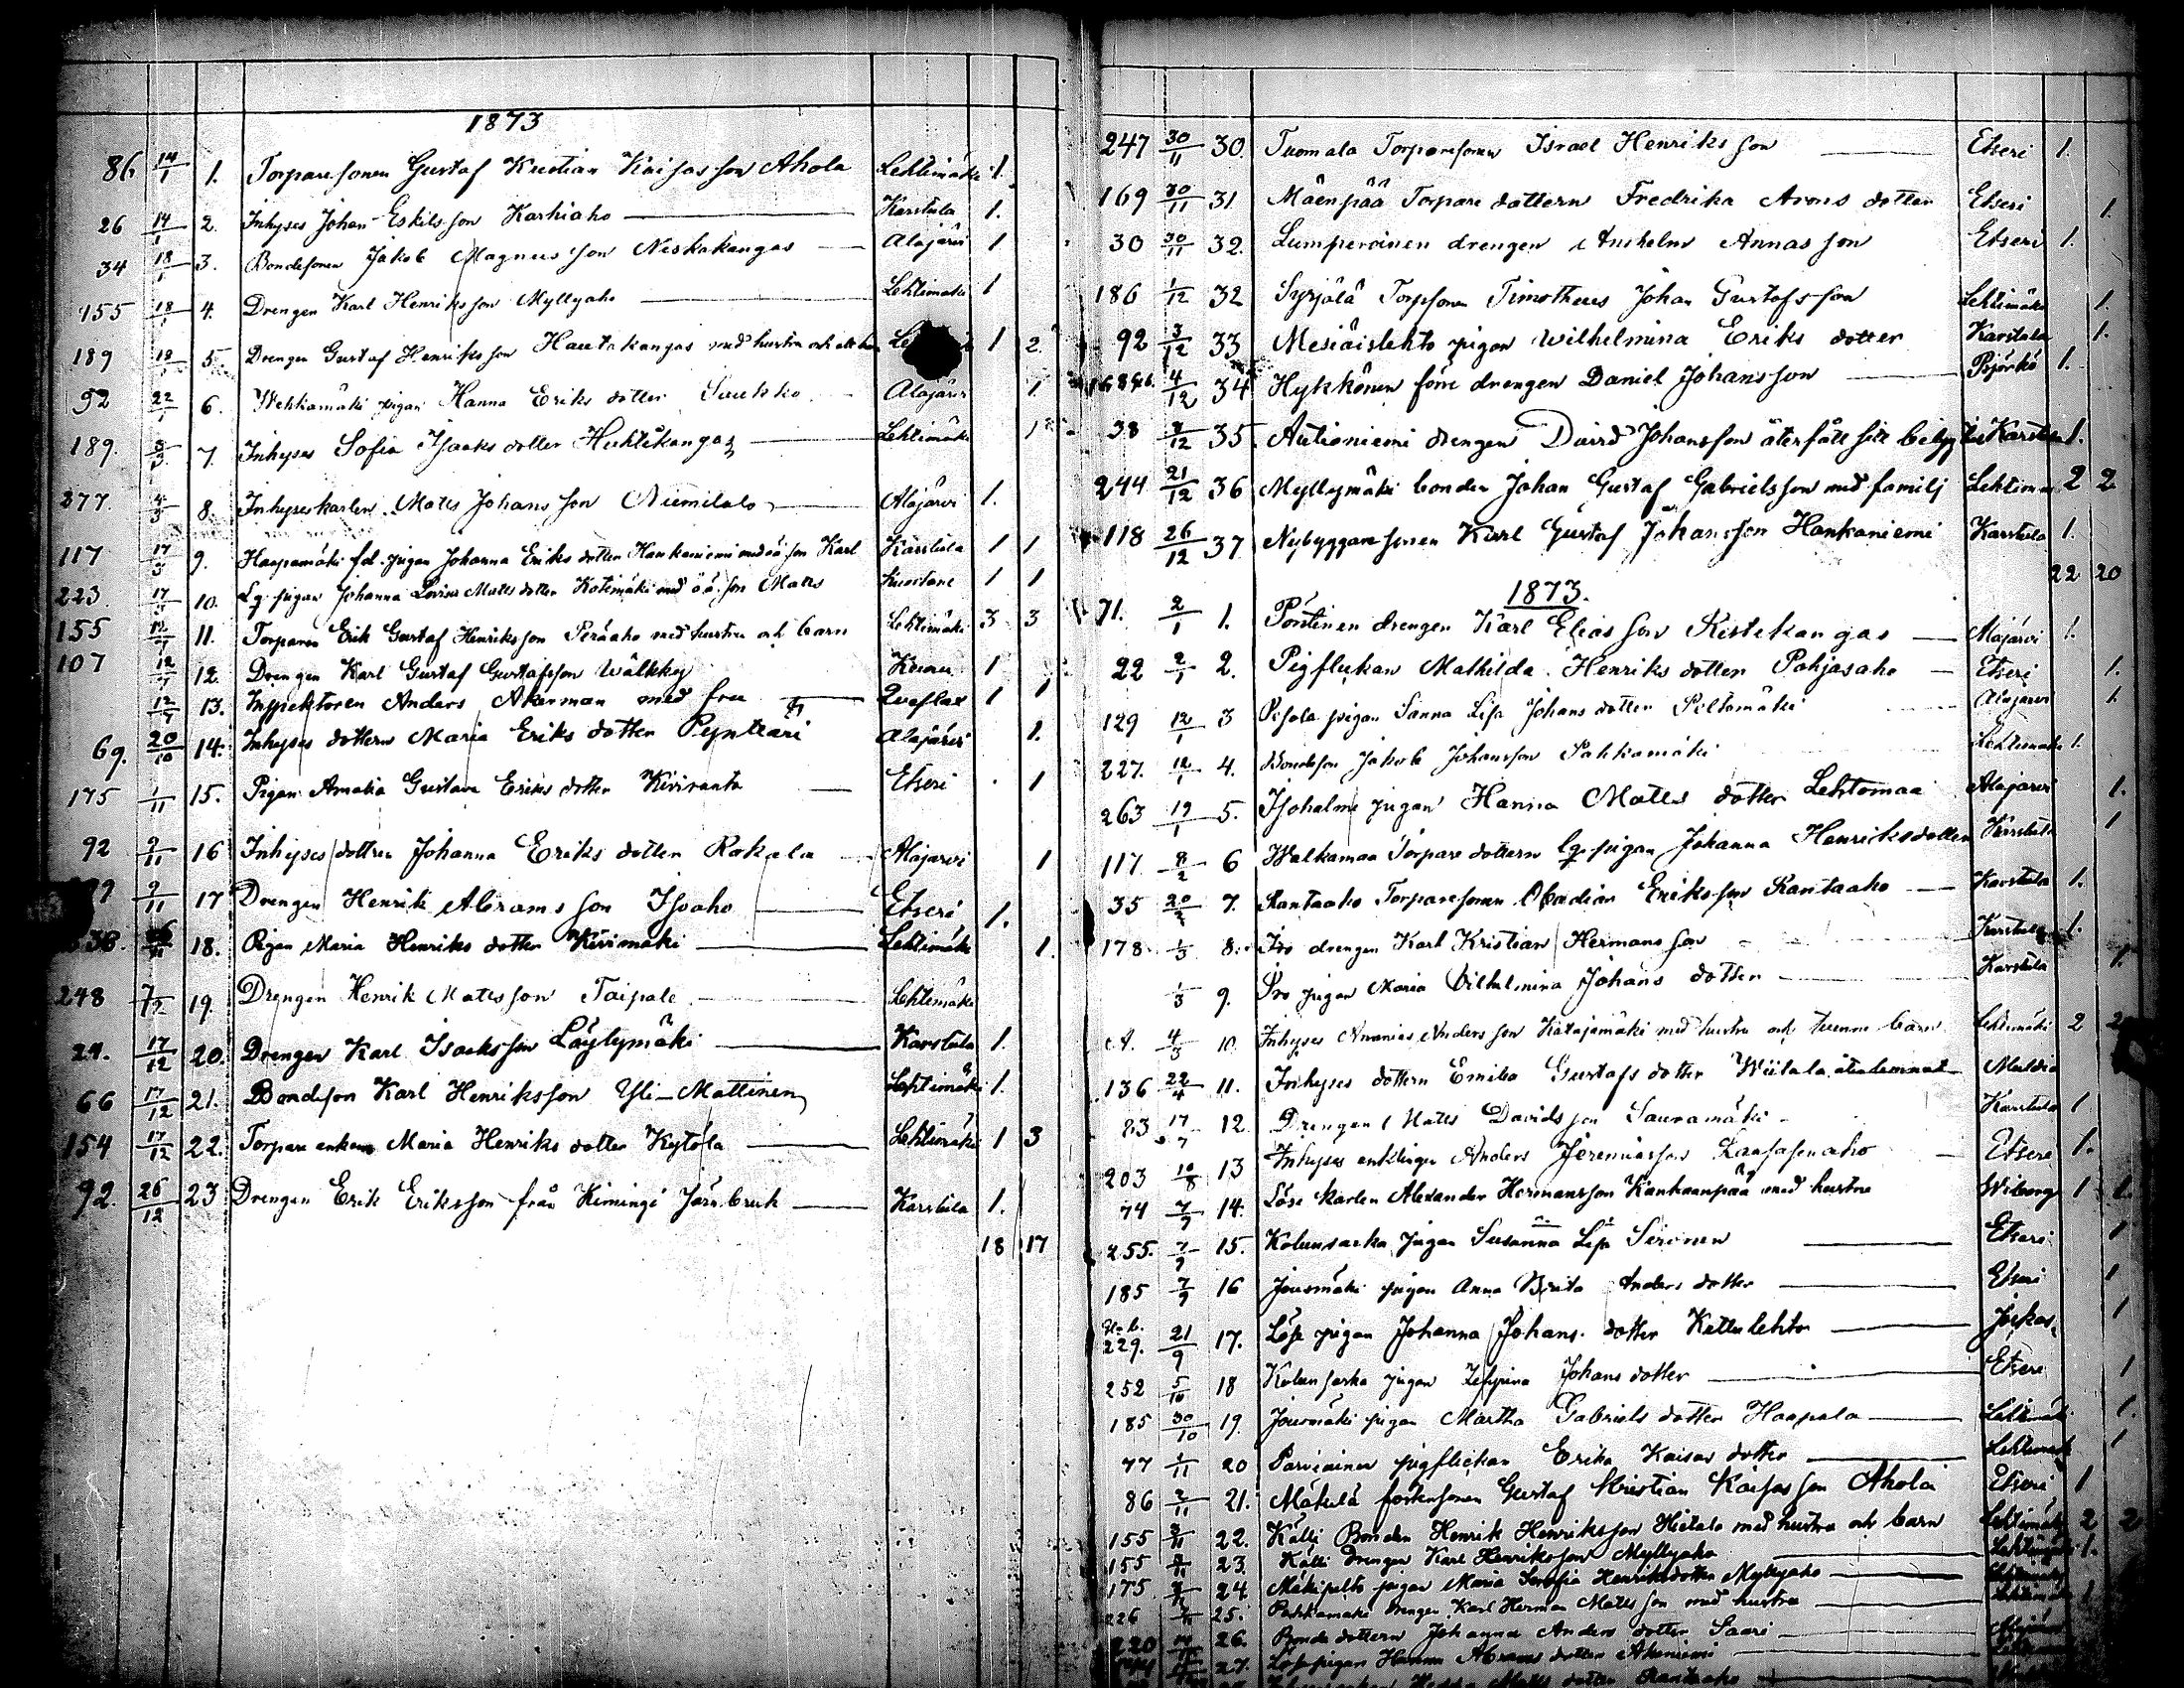 1873
86 14/1 1. Torparesonen Gustaf Kristian Kaisasson Ahola Lehtimäki 1.
26 14/1 2. Inhyses Johan Eskilsson Karhiaho Karstula 1.
34 18/1 3. Bondesonen Jakob Magnusson Niskakangas Alajärvi 1
155 18/1 4. Drengen Karl Henriksson Myllyaho Lehtimäki 1
189 18/1 5. Drengen Gustaf Henriksson Hautakangas med hustru och ett barn 1 2
92 22/1 6. Wehkamäki pigan Hanna Eriks dotter Saukko Alajärvi 1
189. 3/3 7. Inhyses Sofia Isaaks dotter Huhtikangas Lehtimäki 1
277. 4/3 8. Inhyseskarlen Matts Johansson Niemitalo Alajärvi 1.
117 17/3 9. Haapamäki fd. pigan Johanna Eriks dotter Hankaniemi med oä son Karl Karstula 1 1
223. 17/3 10. Lg. pigan Johanna Lovisa Matts dotter Kotimäki med oä. son Matts Kuortane 1 1
155 12/7 11. Torparen Erik Gustaf Henriksson Peräaho med hustru och barn Lehtimäki 3 3
107 12/7 12. Drengen Karl Gustaf Gustafsson Wälkky Keuru 1
12/7 13. Inspektoren Anders Akerman med fru Qveflax 1 1
69. 20/10 14. Inhyses dottern Maria Eriks dotter Pynttäri Alajärvi 1.
175 1/11 15. Pigan Amalia Gustava Eriks dotter Kiviranta Etseri 1
92 9/11 16 Inhyses dottern Johanna Eriks dotter Rokala Alajärvi 1
9/11 17 Drengen Henrik Abramsson Isoaho Etseri 1.
18. Pigan Maria Henriks dotter Kivimäki Lehtimäki 1.
248 7/12 19. Drengen Henrik Mattsson Taipale Lehtimäki
24. 17/12 20. Drengen Karl Isaksson Löytymäki Karstula 1.
66 17/12 21. Bondeson Karl Henriksson Yli-Mattinen Lehtimäki 1.
154 17/12 22. Torpare enkan Maria Henriks dotter Kytölä Lehtimäki 1 3
92. 26/12 23 Drengen Erik Eriksson från Kimingi Järnbruk Karstula 1.
18 17
247 30/11 30. Tuomala Torparesonen Israel Henriksson Etseri 1.
169 30/11 31. Mäenpää Torpare dottern Fredrika Arons dotter Etseri 1.
30 30/11 32. Lumperoinen drengen Anshelm Annasson Etseri 1.
186 1/12 32 Syrjälä Torpsonen Timotheus Johan Gustafsson Lehtimäki 1.
92 3/12 33 Mesiäislehto pigan Wilhelmina Eriks dotter Karstula 1.
4/12 34 Hykkönen före drengen Daniel Johansson Björkö 1.
38 35. Autioniemi drengen David Johansson återfått sitt betyg Karstula 1.
244 21/12 36 Myllymäki bonden Johan Gustaf Gabrielsson med familj Lehtimäki 2 2
118 26/12 37 Nybyggaresonen Karl Gustaf Johansson Hankaniemi Karstula 1.
22 20
1873.
71. 2/1 1. Pöntinen drengen Karl Eliasson Ristikangas Alajärvi 1.
22 2/1 2. Pigflickan Mathilda Henriks dotter Pohjasaho Etseri 1.
129 12/1 3 Pesola pigan Sanna Lisa Johans dotter Peltomäki Alajärvi 1.
227. 12/1 4. Bondeson Jakob Johansson Pahkamäki Lehtimäki 1.
263 19/1 5. Isoholmi pigan Hanna Matts dotter Lehtomaa Alajärvi 1.
117. 8/2 6 Walkamaa Torpare dottern lg. pigan Johanna Henriksdotter Karstula 1
35 20/2 7. Rantaaho Torparesonen Obadias Eriksson Rantaaho Karstula 1.
178. 1/3 8. Iso drengen Karl Kristian Hermansson Karstula 1.
1/3 9. Iso pigan Maria Vilhelmina Johans dotter Karstula 1.
4/3 10. Inhyses Ananias Andersson Katajamäki med hustru och tvenne barn Lehtimäki 2 2
136 22/4 11. Inhyses dottern Emilia Gustafs dotter Wiitala återlemnat Multia
83 17/7 12. Drengen Matts Davidsson Sauramäki Karstula 1
203 10/8 13 Inhyses enklingen Anders Jeremiasson Etseri 1.
74 7/9 14. Löse karlen Alexander Hermansson Kankaanpää med hustru Wiborg 1 1.
255. 7/9 15. pigan Susanna Lisa Sironen Etseri 1
185 7/9 16 Jousmäki pigan Anna Brita Anders dotter Etseri 1
229. 21/9 17. Löse pigan Johanna Johans dotter Kettulehto 1
252 5/10 18 pigan Johans dotter Etseri 1
185 30/10 19. Jousmäki pigan Martha Gabriels dotter Haapala Lehtimäki 1.
77 1/11 20 Parviainen pigflickan Erika Kaisas dotter Lehtimäki 1
86 2/11 21. Mäkelä Gustaf Kristian Kaisasson Ahola Etseri 1
155 22. Källi Bonden Henrik Henriksson Hietala med hustru och barn Lehtimäki 2 2
155 23. Källi drengen Karl Henriksson Myllyaho Lehtimäki 1.
175 24 Mäkipelto pigan Maria Serafia Henriksdotter Myllyaho
226 25. Pahkamäki drengen Karl Herman Mattsson med hustru 1
220 26. Bonde dottern Johanna Anders dotter Saari
27. Lösepigan Hanna Abrams dotter Akoniemi
Matts dotter Rantaaho